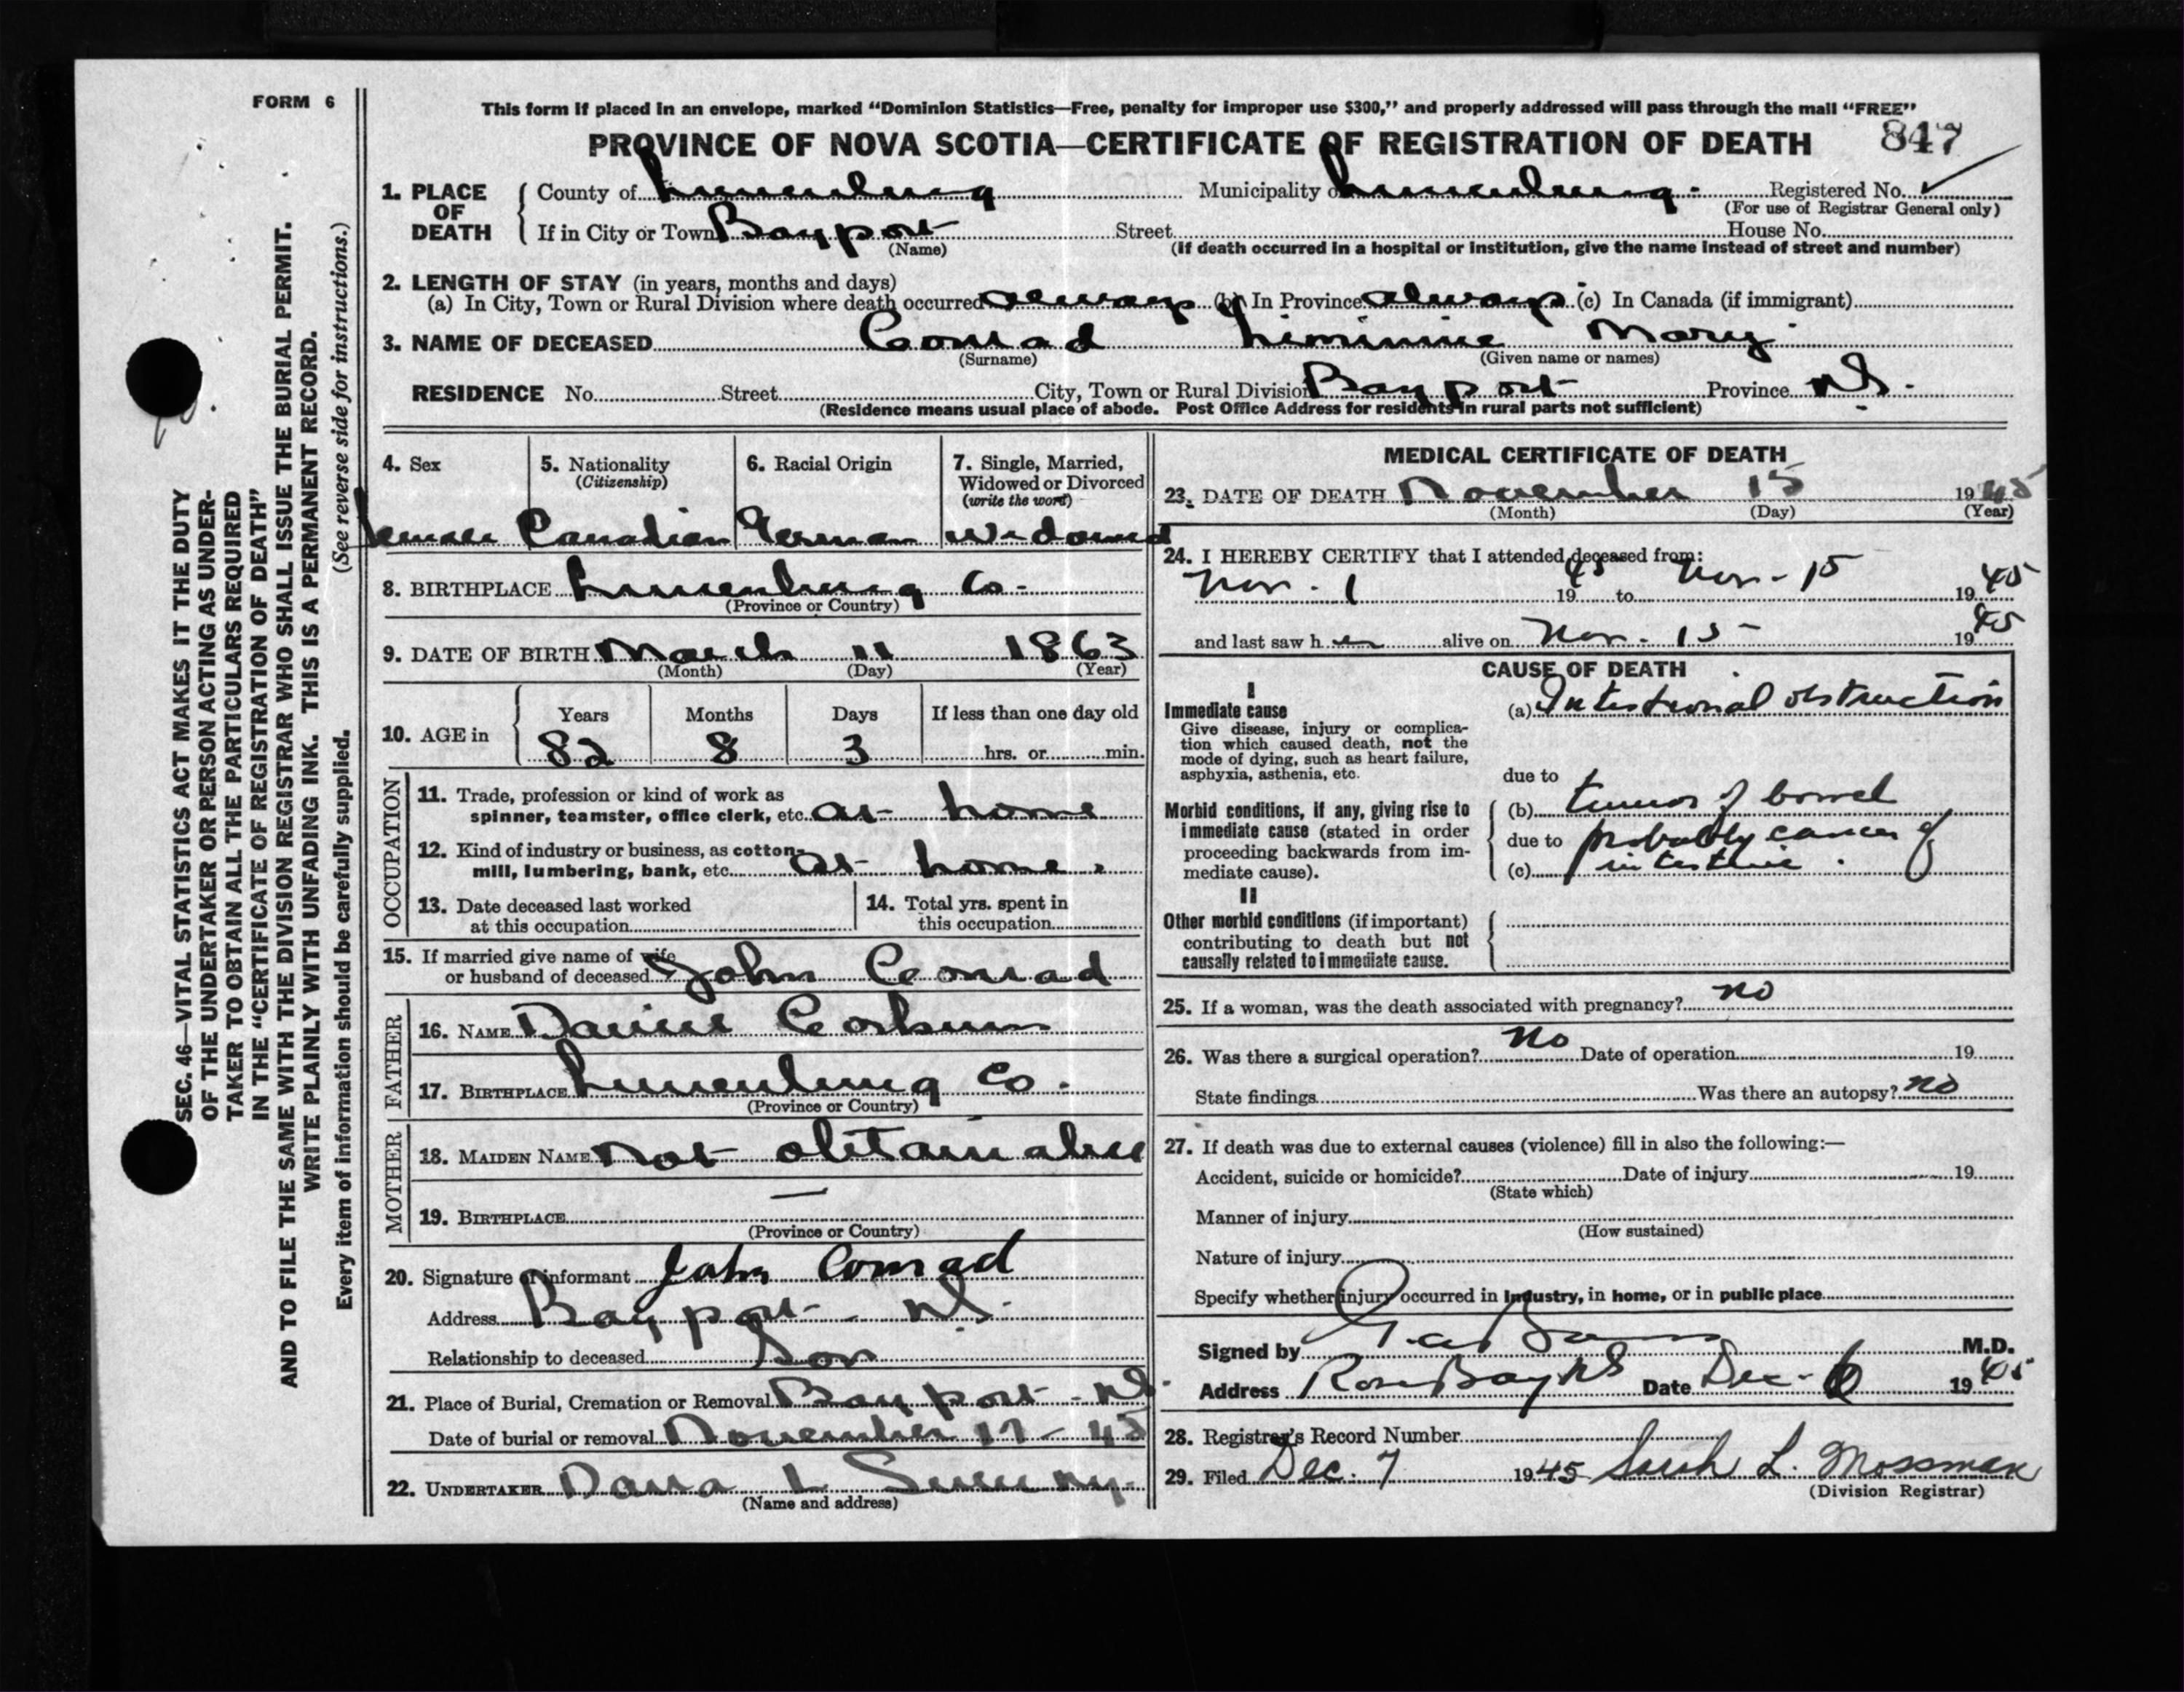 FORM 6
This form if placed in an envelope, marked "Dominion Statistics—Free, penalty for improper use $300," and properly addressed will pass through the mail "FREE"
PROVINCE OF NOVA SCOTIA—CERTIFICATE OF REGISTRATION OF DEATH 847
1. PLACE OF DEATH County of Lunenburg Municipality of Lunenburg. Registered No. ✓
(For use of Registrar General only)
If in City or Town Bayport Street House No.
(Name) (If death occurred in a hospital or institution, give the name instead of street and number)
2. LENGTH OF STAY (in years, months and days)
(a) In City, Town or Rural Division where death occurred always (b) In Province always (c) In Canada (if immigrant)
3. NAME OF DECEASED Conrad Liminnie Mary
(Surname) (Given name or names)
RESIDENCE No. Street City, Town or Rural Division Bayport Province N.S.
(Residence means usual place of abode. Post Office Address for residents in rural parts not sufficient)
4. Sex 5. Nationality (Citizenship) 6. Racial Origin 7. Single, Married, Widowed or Divorced (write the word)
female Canadian German Widowed
8. BIRTHPLACE Lunenburg Co.
(Province or Country)
9. DATE OF BIRTH March 11 1863
(Month) (Day) (Year)
10. AGE in Years Months Days If less than one day old
82 8 3 hrs. or min.
OCCUPATION
11. Trade, profession or kind of work as
spinner, teamster, office clerk, etc. at home
12. Kind of industry or business, as cotton-
mill, lumbering, bank, etc. at home
13. Date deceased last worked
at this occupation
14. Total yrs. spent in
this occupation
15. If married give name of wife
or husband of deceased John Conrad
FATHER
16. NAME Daniel Corkum
17. BIRTHPLACE Lunenburg Co.
(Province or Country)
MOTHER
18. MAIDEN NAME not obtainable
19. BIRTHPLACE —
(Province or Country)
20. Signature of informant John Conrad
Address Bayport N.S.
Relationship to deceased Son
21. Place of Burial, Cremation or Removal Bayport - N.S.
Date of burial or removal November 17 - 45
22. UNDERTAKER Dana L Sweeny
(Name and address)
MEDICAL CERTIFICATE OF DEATH
23. DATE OF DEATH November 15 1945
(Month) (Day) (Year)
24. I HEREBY CERTIFY that I attended deceased from:
Nov. 1 1945 to Nov. 15 1945
and last saw her alive on Nov. 15 1945
CAUSE OF DEATH
I
Immediate cause (a) Intestional obstruction
Give disease, injury or complica-
tion which caused death, not the
mode of dying, such as heart failure,
asphyxia, asthenia, etc.
due to
Morbid conditions, if any, giving rise to (b) tumor of bowel
immediate cause (stated in order due to probably cancer of
proceeding backwards from im- (c) intestine.
mediate cause).
II
Other morbid conditions (if important)
contributing to death but not
causally related to immediate cause.
25. If a woman, was the death associated with pregnancy? no
26. Was there a surgical operation? No Date of operation 19
State findings Was there an autopsy? no
27. If death was due to external causes (violence) fill in also the following:—
Accident, suicide or homicide? Date of injury 19
(State which)
Manner of injury
(How sustained)
Nature of injury
Specify whether injury occurred in industry, in home, or in public place
Signed by M.D.
Address Rose Bay NS Date Dec. 6 1945
28. Registrar's Record Number
29. Filed Dec. 7 1945 Sarah L. Mossman
(Division Registrar)
SEC. 46—VITAL STATISTICS ACT MAKES IT THE DUTY
OF THE UNDERTAKER OR PERSON ACTING AS UNDER-
TAKER TO OBTAIN ALL THE PARTICULARS REQUIRED
IN THE "CERTIFICATE OF REGISTRATION OF DEATH"
AND TO FILE THE SAME WITH THE DIVISION REGISTRAR WHO SHALL ISSUE THE BURIAL PERMIT.
WRITE PLAINLY WITH UNFADING INK. THIS IS A PERMANENT RECORD.
(See reverse side for instructions.)
Every item of information should be carefully supplied.